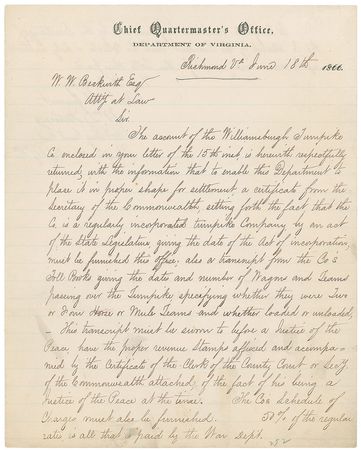 Chief Quartermaster's Office,
DEPARTMENT OF VIRGINIA.
Richmond Va June 18th 1866.
W. W. Beckwith Esq
Atty at Law
Sir
The account of the Williamsburgh Turnpike
Co enclosed in your letter of the 15th inst is herewith respectfully
returned, with the information that to enable this Department to
place it in proper shape for settlement a certificate from the
Secretary of the Commonwealth, setting forth the fact that the
Co. is a regularly incorporated turnpike Company by an act
of the State Legislature giving the date of the Act of incorporation,
must be furnished this Office, also a transcript from the Co's
Toll Books giving the date and number of Wagons and Teams
passing over the Turnpike specifying whether they were Two
or Four Horse or Mule Teams and whether loaded or unloaded,
- This transcript must be sworn to before a Justice of the
Peace, have the proper revenue Stamps affixed and accompa-
nied by the Certificate of the Clerk of the County Court or Secy.
of the Commonwealth attached, of the fact of his being a
Justice of the Peace at the time. The Co's Schedule of
Charges must also be furnished. 50% of the regular
rates is all that is paid by the War Dept.
252